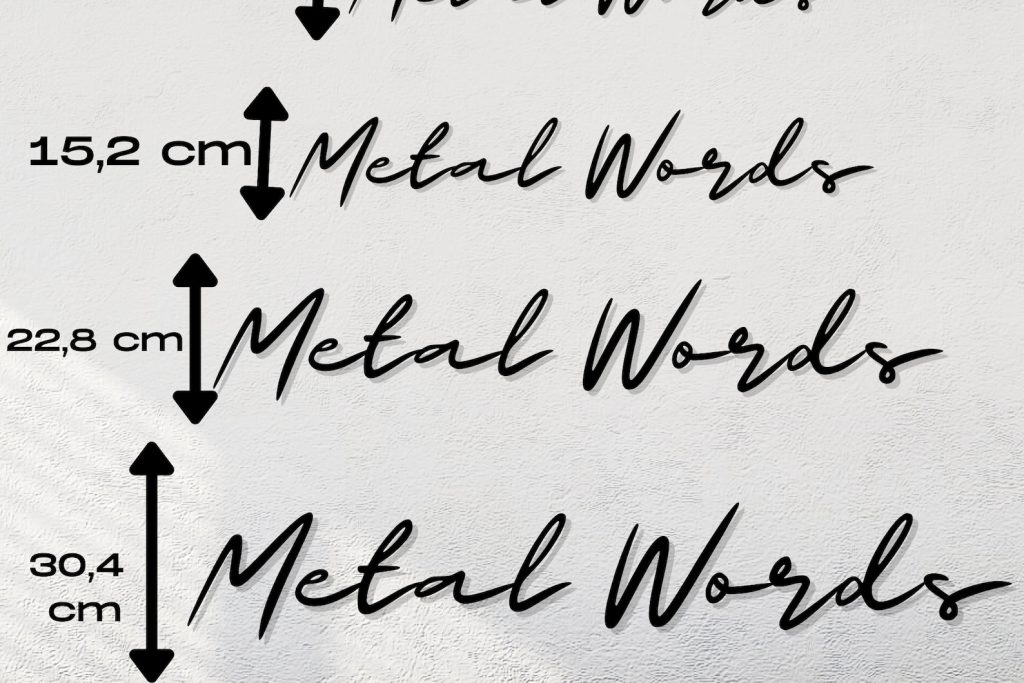 Metal Words
15,2 cm
Metal Words
22,8 cm
Metal Words
30,4
cm
Metal Words